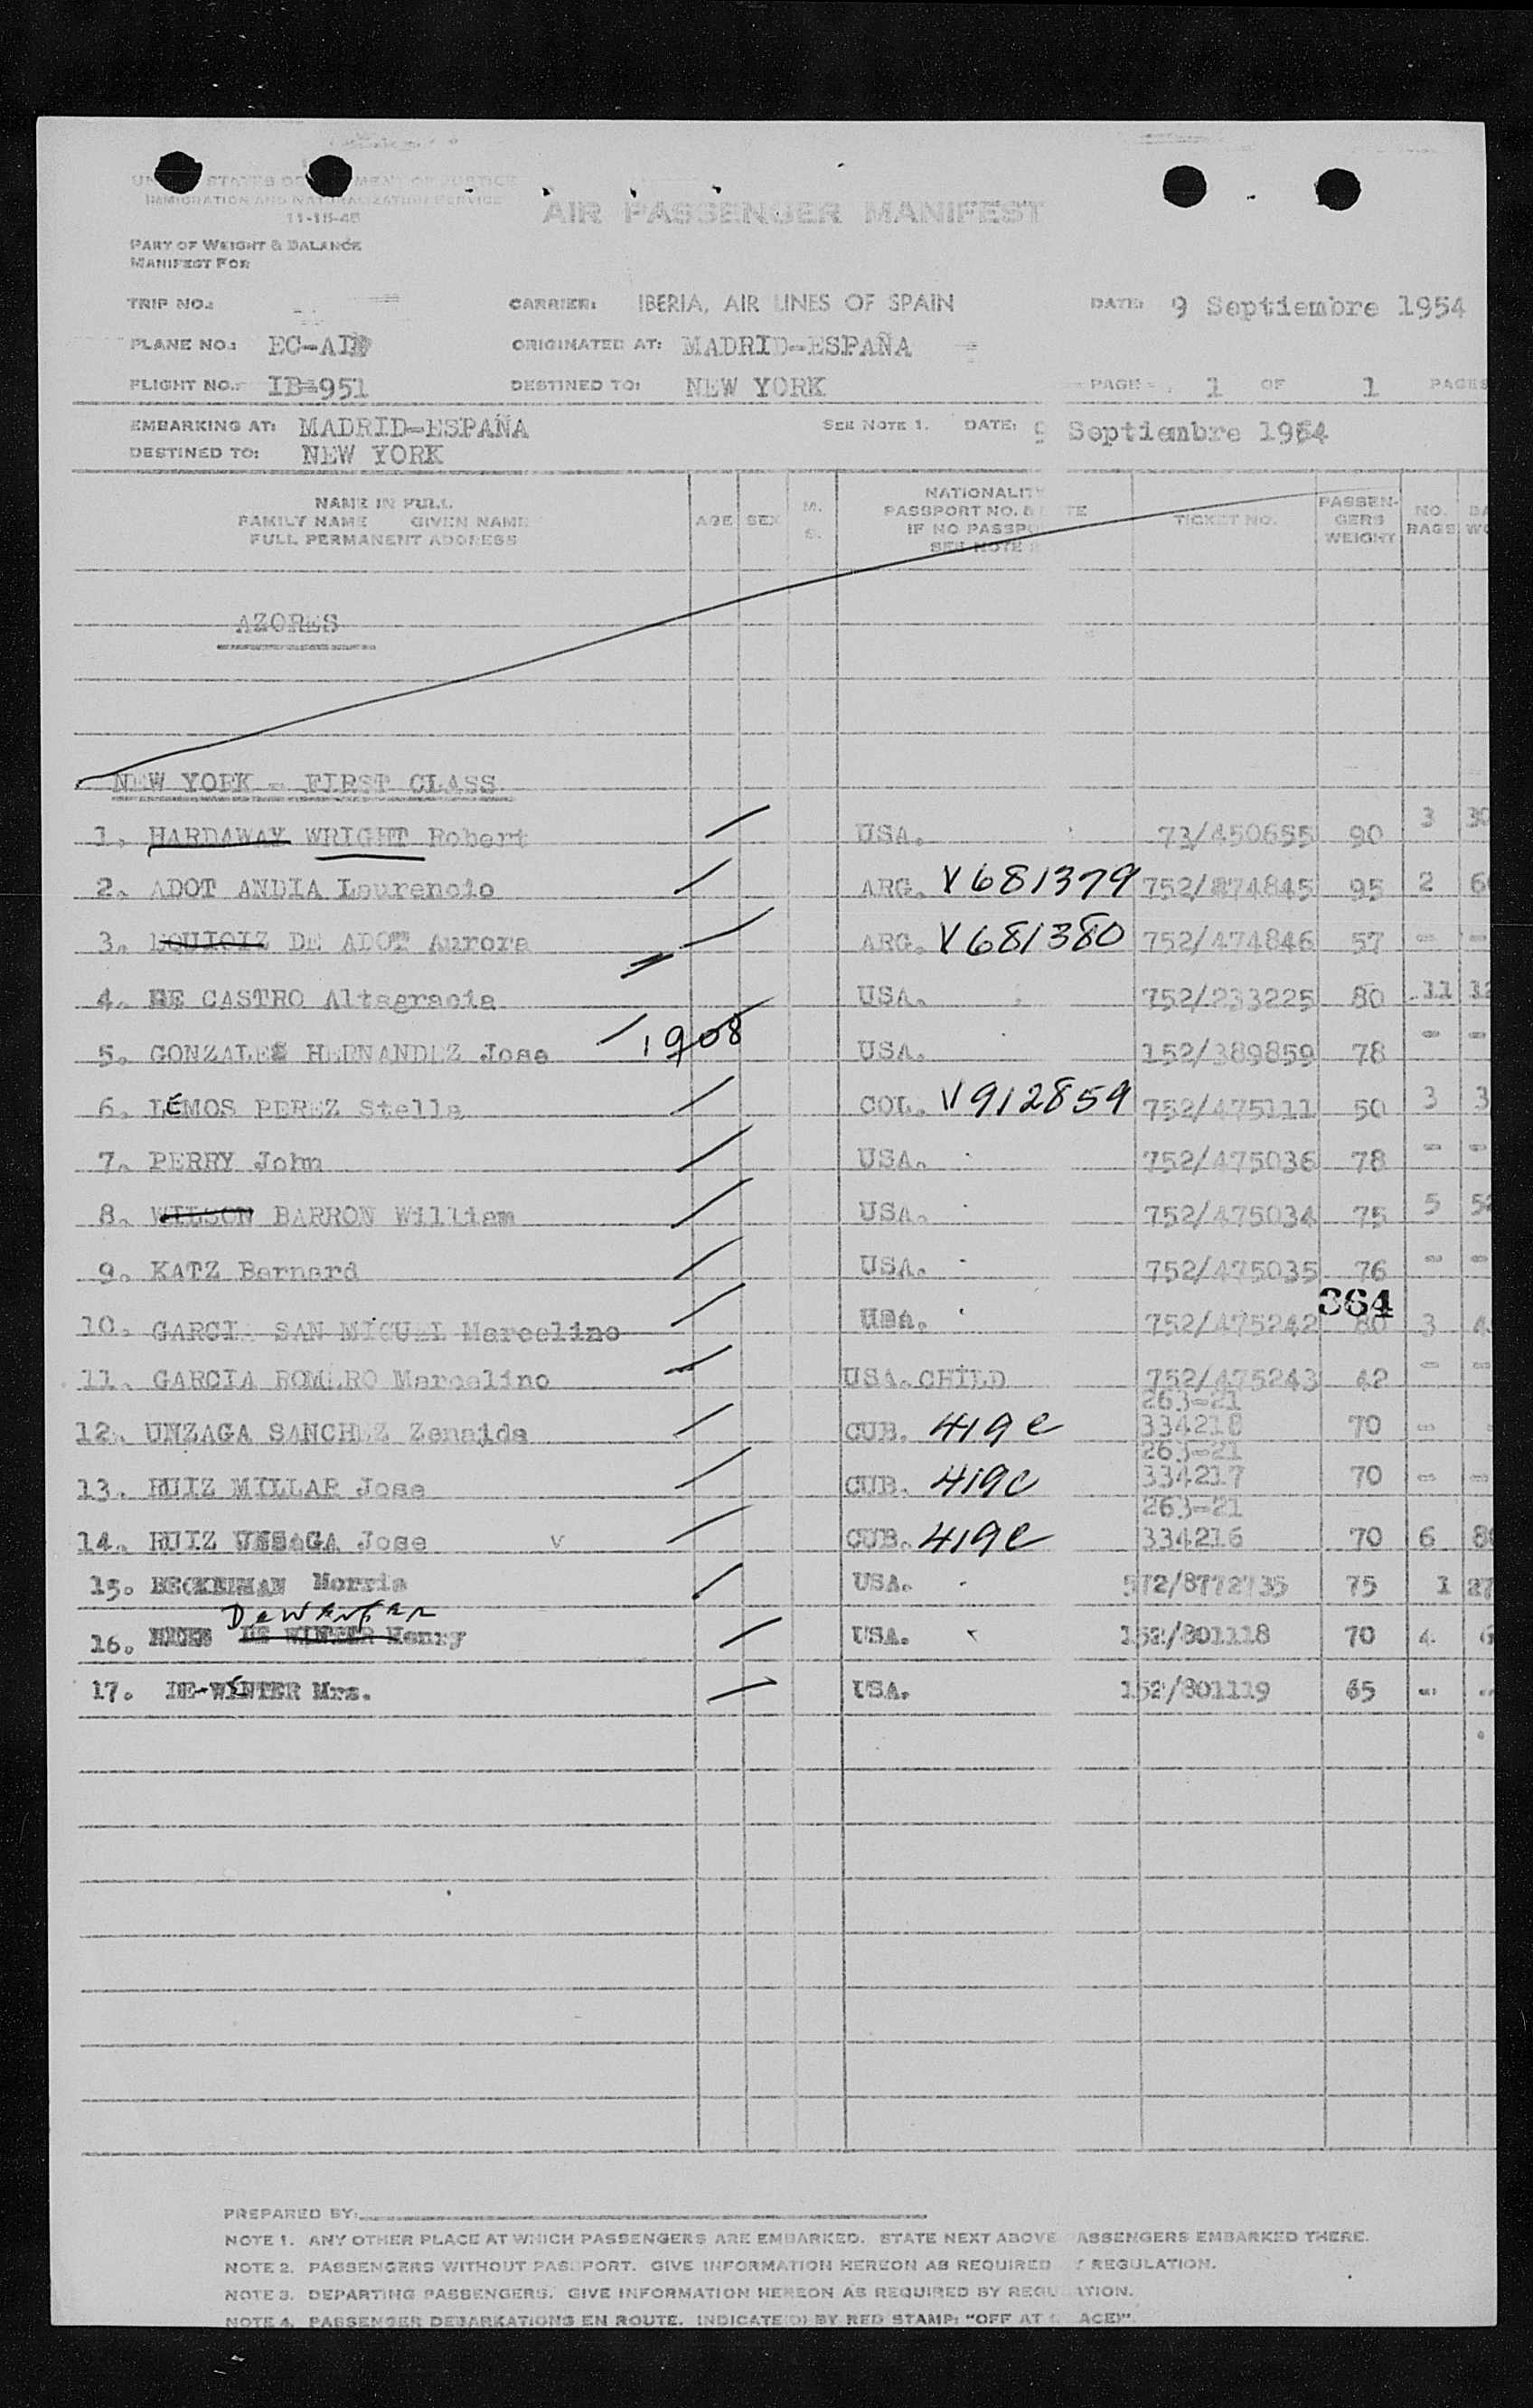 UNITED STATES DEPARTMENT OF JUSTICE
IMMIGRATION AND NATURALIZATION SERVICE
11-15-48
AIR PASSENGER MANIFEST
PART OF WEIGHT & BALANCE
MANIFEST FOR
TRIP NO.: CARRIER: IBERIA, AIR LINES OF SPAIN DATE: 9 Septiembre 1954
PLANE NO.: ORIGINATED AT: MADRID-ESPAÑA
FLIGHT NO.: IB-951 DESTINED TO: NEW YORK PAGE 1 OF 1 PAGES
EMBARKING AT: MADRID-ESPAÑA SEE NOTE 1. DATE: 9 Septiembre 1954
DESTINED TO: NEW YORK
NAME IN FULL
FAMILY NAME GIVEN NAME
FULL PERMANENT ADDRESS
AGE SEX M. S.
NATIONALITY
PASSPORT NO. &
IF NO PASSPORT
SEE NOTE
TICKET NO.
PASSENGERS WEIGHT
NO. BAGS
AZORES
NEW YORK - FIRST CLASS
1. HARDAWAY WRIGHT Robert USA. 73/450655 90 3 30
2. ADOT ANDIA Laurencio ARG. V681379 752/474845 95 2
3. EQUICIZ DE ADOT Aurora ARG. V681380 752/474846 57 - -
4. DE CASTRO Altagracia USA. 752/233225 80 11 12
5. GONZALEZ HERNANDEZ Jose 1908 USA. 152/389859 78 - -
6. LEMOS PEREZ Stella COL. V912859 752/475111 50 3 3
7. PERRY John USA. 752/475036 78 - -
8. WILSON BARRON William USA. 752/475034 75 5 52
9. KATZ Bernard USA. 752/475035 76 - -
364
10. GARCIA SAN MIGUEL Marcelino USA. 752/475242 80 3 4
11. GARCIA ROMERO Marcelino USA. CHILD 752/475243 42 - -
12. UNZAGA SANCHEZ Zenaida CUB. 419c 263-21 334218 70 -
13. RUIZ MILLAR Jose CUB. 419c 263-21 334217 70 - -
14. RUIZ UNSAGA Jose v CUB. 419c 263-21 334216 70 6 8
15. BECKERMAN Morris USA. 572/8772735 75 1 27
DeWENTER
16. DE WINTER Henry USA. 152/801118 70 4 6
17. DE-WENTER Mrs. USA. 152/801119 65 - -
PREPARED BY:
NOTE 1. ANY OTHER PLACE AT WHICH PASSENGERS ARE EMBARKED. STATE NEXT ABOVE PASSENGERS EMBARKED THERE.
NOTE 2. PASSENGERS WITHOUT PASSPORT. GIVE INFORMATION HEREON AS REQUIRED BY REGULATION.
NOTE 3. DEPARTING PASSENGERS. GIVE INFORMATION HEREON AS REQUIRED BY REGULATION.
NOTE 4. PASSENGER DEBARKATIONS EN ROUTE. INDICATE(D) BY RED STAMP: "OFF AT (PLACE)".